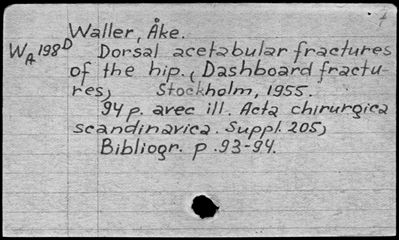 Waller, Åke.
WA 198D Dorsal acetabular fractures
of the hip. (Dashboard fractu-
res) Stockholm, 1955.
94 p. avec ill. Acta chirurgica
scandinavica. Suppl. 205)
Bibliogr. p. 93-94.